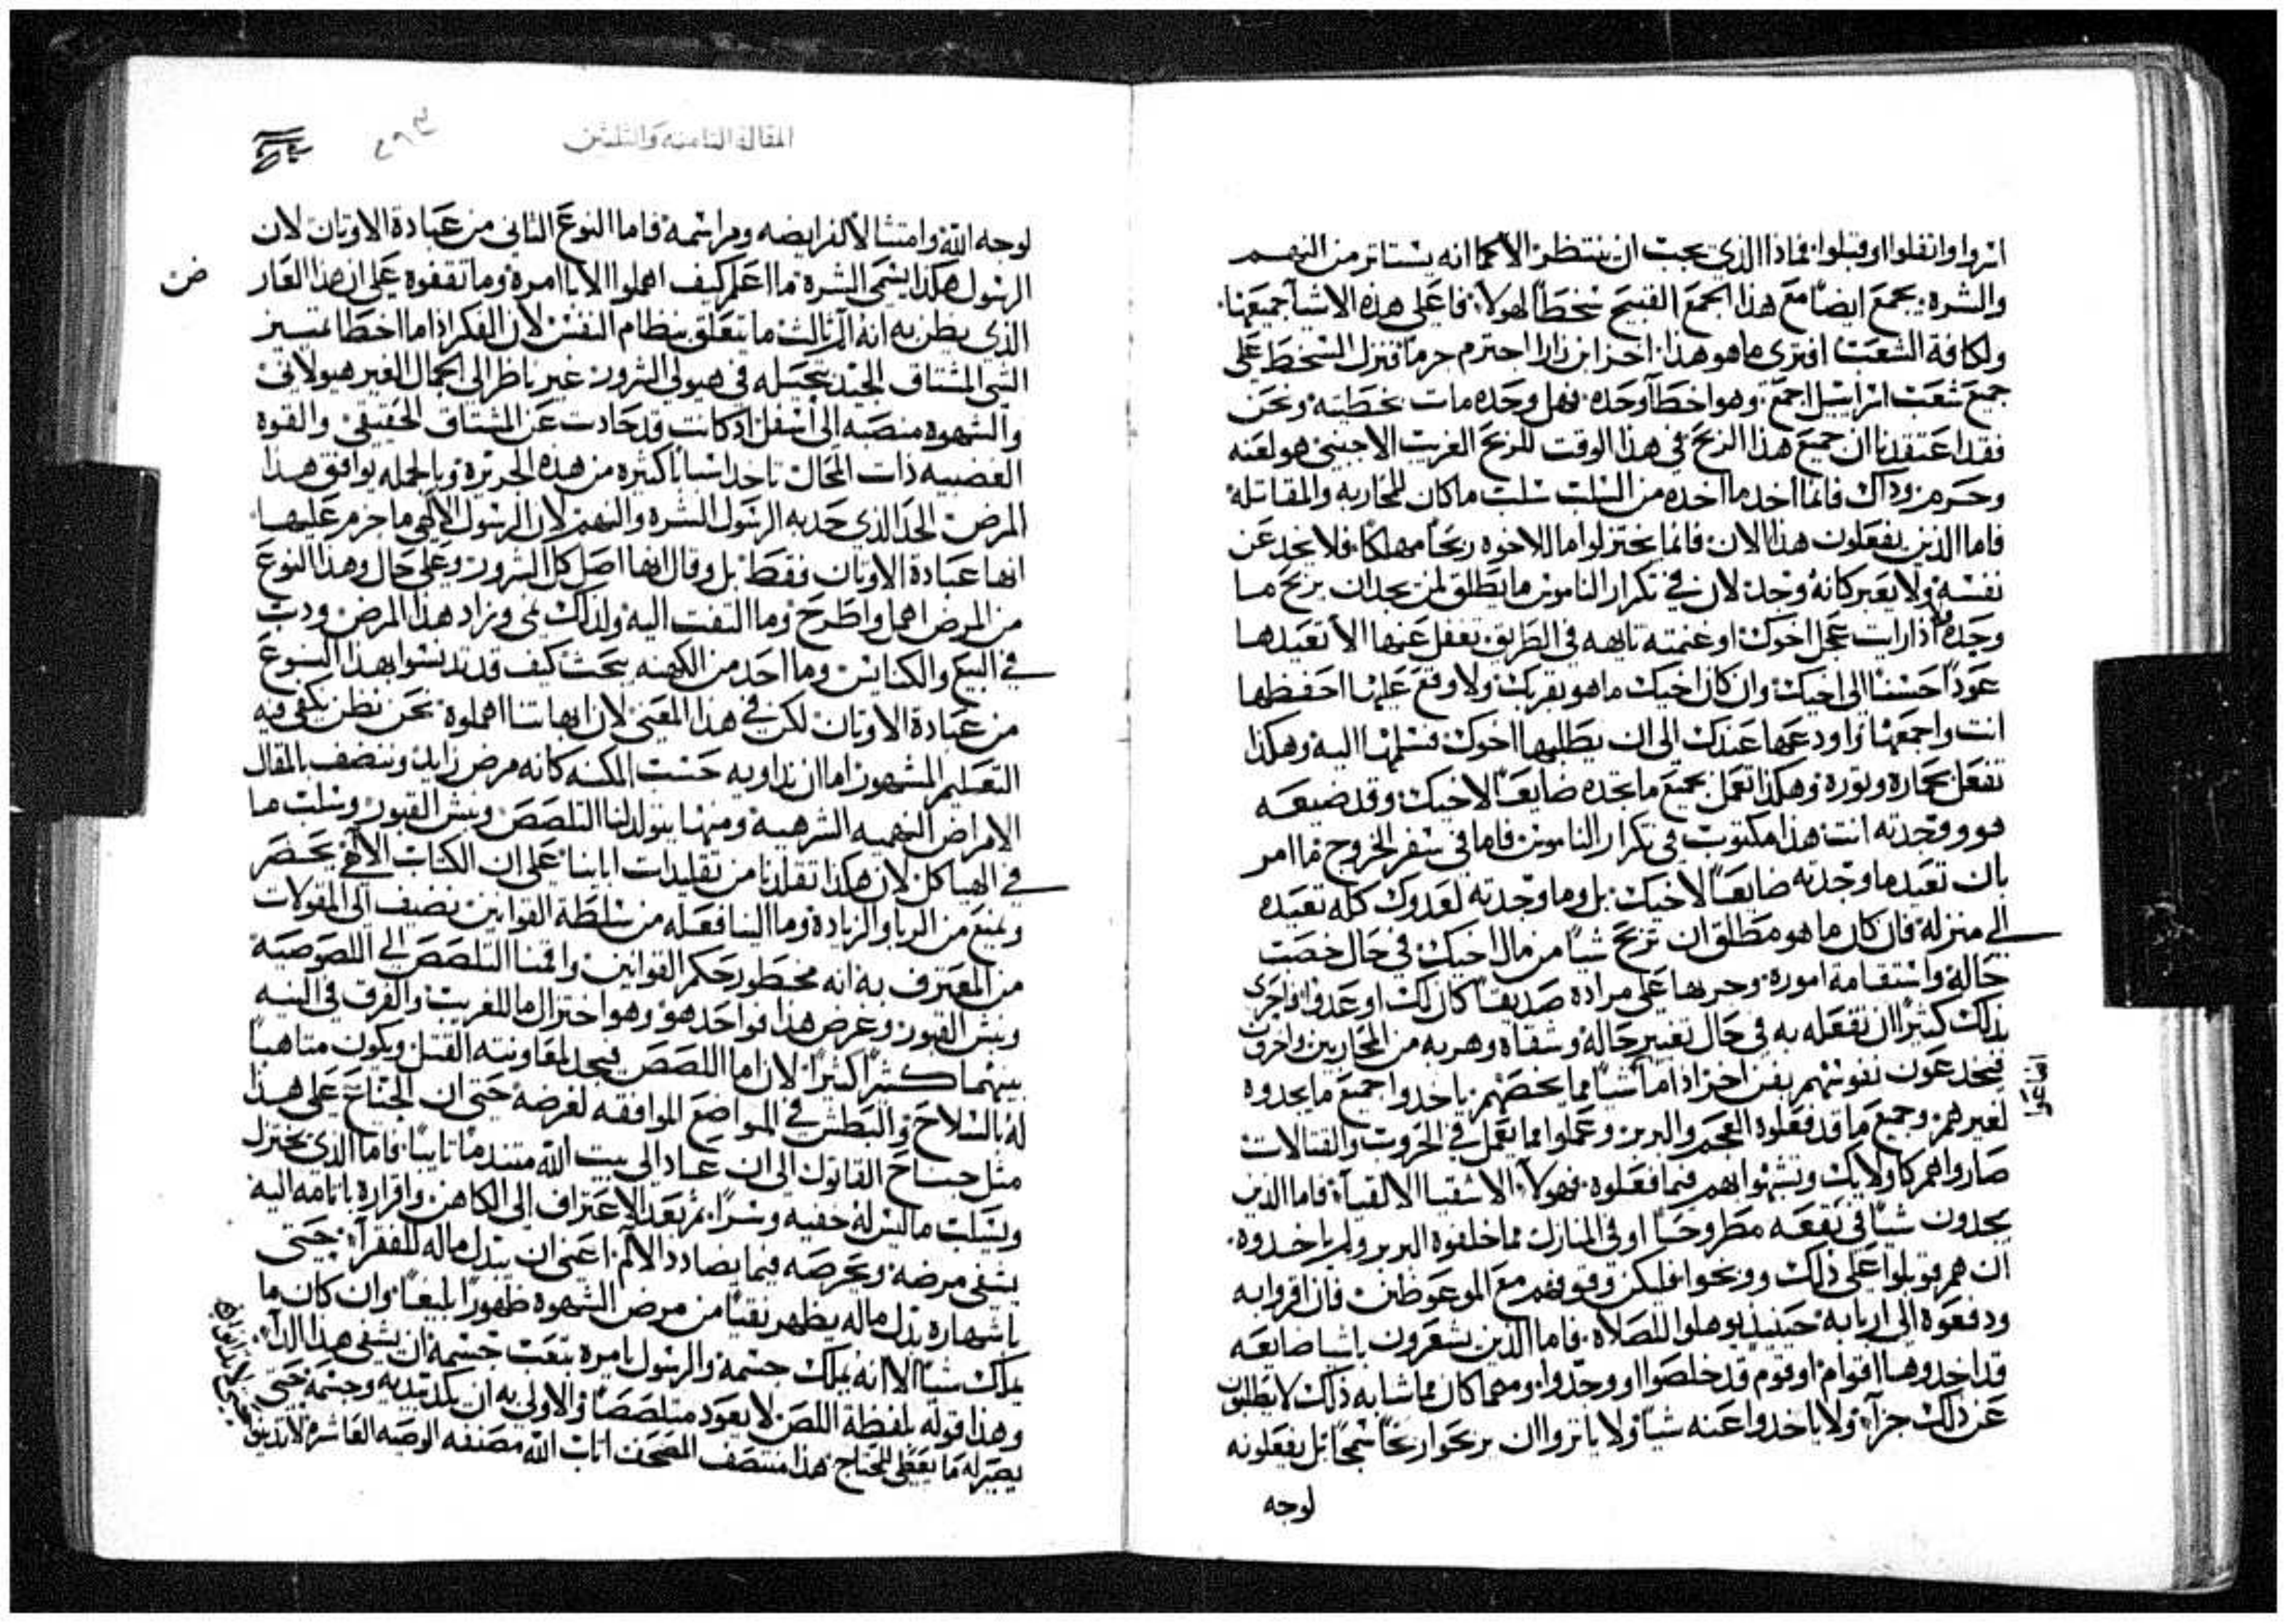 اثروا وانقلوا او قبلوا فماذا الذي يجب ان ننتظر الا كما انه يستاتر من النهم
والشره يجمع ايضا مع هذا الجمع القبيح سخطا لهولا فاعلي هذه الاشيا جميعها
ولكافة الشعب افترى ما هو هذا اخر ابن زارا احترم حرما فنزل السخط على
جميع شعب اسراييل اجمع وهو اخطا وحده فهل وحده مات بخطيته ونحن
فقد اعتقدنا ان جميع هذا الربح في هذا الوقت للربح الغريب الاجنبي هو لعنه
وحرم وذاك فانما اخد ما اخده من السلب سلب ما كان للمحاربه والمقاتله
فاما الذين يفعلون هذا الان فانما يختزلوا ما للاخوه ربحا مهلكا فلا يجد عن
نفسه ولا يعبر كانه وجد لان في تكرار الناموس ما يطلق لمن يجد ان يربح ما
وجده اذا رايت عجل اخوك او غنمته تايهه في الطريق تغفل عنها الا تعيدها
عودا حسنا الى اخيك وان كان اخيك ما هو بقربك ولا وقع علمها احفظها
انت واجمعها واودعها عندك الى ان يطلبها اخوك فسلمها اليه وهكذا
تفعل بحماره وثوره وهكذا تعمل بجميع ما تجده ضايعا لاخيك وقد ضيعه
هو ووجدته انت هذا مكتوب في تكرار الناموس فاما في سفر الخروج فما امر
بان تعيد ما وجدته ضايعا لاخيك بل وما وجدته لعدوك كله تعيده
الى منزله فان كان ما هو مطلق ان تربح شيا من مال اخيك في حال خصب
حاله واستقامة اموره وجريها على مراده صديقا كان لك او عدوا واحرى
بذلك كثيرا ان تفعله به في حال تغيير حاله وشقاه وهربه من المحاربين واخرون
فيخدعون نفوسهم بفن اخر اذا ما شيا مما يخصهم ياخدوا جميع ما يجدوه
لغيرهم وجميع ما قد فعلوه العجم والبربر وعملوا مما يعمل في الحروب والقتالات
صاروا هم كاولايك وتشبهوا بهم فيما فعلوه فهولا الاشقيا الالقيا فاما الدين
يجدون شيا في بقعه مطروحا او في المنازل مما خلفوه البربر ولم ياخدوه
ان هم قوبلوا على ذلك ووبخوا فليكن وقوفهم مع الموعوظين فان اقروا به
ودفعوه الى اربابه حينيد يوهلوا للصلاه فاما الدين يشعرون باشيا ضايعه
قد اخدوها اقوام او قوم قد خلصوا او وجدوا ومهما كان مما شابه ذلك لا يطلبون
عن ذلك جزا ولا ياخدوا عنه شيا ولا ياثروا ان يربحوا ربحا سمجا بل يفعلونه
لوجه
المقالة الثامنه والثلثين
لوجه الله وامتثالا لفرايضه ومراسمه فاما النوع الثاني من عبادة الاوثان لان
الرسول هكذا يسمي الشره ما اعلم كيف اهملوا الابا امره وما تقفوه على ان هذا العار
الذي يظن به انه الم ثالث ما يتعلق بنظام النفس لان الفكر اذا ما اخطا تمييز
الشي المشتاق الجيد يتخيله في هيولي الشرور غير ناظر الى الجمال الغير هيولاني
والشهوه منصبه الى اسفل اد كانت قد حادت عن المشتاق الحقيقي والقوه
الغضبيه ذات المحال تاخد اسبابا كثيره من هذه الجريره وبالجمله يوافق هذا
المرض الحد الذي حد به الرسول الشره والنهم لان الرسول الالهي ما حرم عليها
انها عبادة الاوثان فقط بل وقال انها اصل كل الشرور وعلى حال وهذا النوع
من المرض اهمل واطرح وما التفت اليه ولذلك نمى وزاد هذا المرض ودب
في البيع والكنايس وما احد من الكهنه بحث كيف قد تدنسوا بهذا النوع
من عبادة الاوثان لكن في هذا المعنى لان ابهاتنا اهملوه نحن نظن يكفى فيه
التعليم المشهور اما ان نداويه حسب المكنه كانه مرض زايد وننضف بالمقال
الامراض النهميه الشرهيه ومنها يتولد لنا التلصص ونبش القبور وسلب ما
في الهياكل لان هكذا تقلدنا من تقليدات اباينا على ان الكتاب الالهي يحصر
ويمنع من الربا والزيادة وما النا فعله من سلطة القوانين نضيف الى المقولات
من المعترف به انه محظور بحكم القوانين واقمنا التلصص الى اللصوصية
ونبش القبور وغرض هذا فواحد هو وهو اختزال ما للغريب والفرق في النيه
بينهما كثيرا كثيرا لان اما اللصص فيجد لمعاونته القتل ويكون متاهبا
له بالسلاح والبطش في المواضع الموافقه لغرضه حتى ان الجناح على هذا
مثل جناح القاتول الى ان عاد الى بيت الله متندما تايبا فاما الذي يختزل
ويسلب ما ليس له خفيه وسرا ثم بعد الاعتراف الى الكاهن واقراره باثامه اليه
يشفى مرضه وبحرصه فيما يضادد الالم اعني ان يبدل ماله للفقرا حتى
باشهاره بذل ماله يظهر نقيا من مرض الشهوه ظهورا بليغا وان كان ما
يملك شيا الا انه يملك جسمه والرسول يامره بتعب جسمه ان يشفى هذا الدا
وهذا قوله بلفظة اللص لا يعود متلصصا والاولى به ان يكد بيديه وجسمه حتى
يصير له ما يعطي للمحتاج هذا منتصف المصحف اثاب الله مصنفه الوصيه العاشره